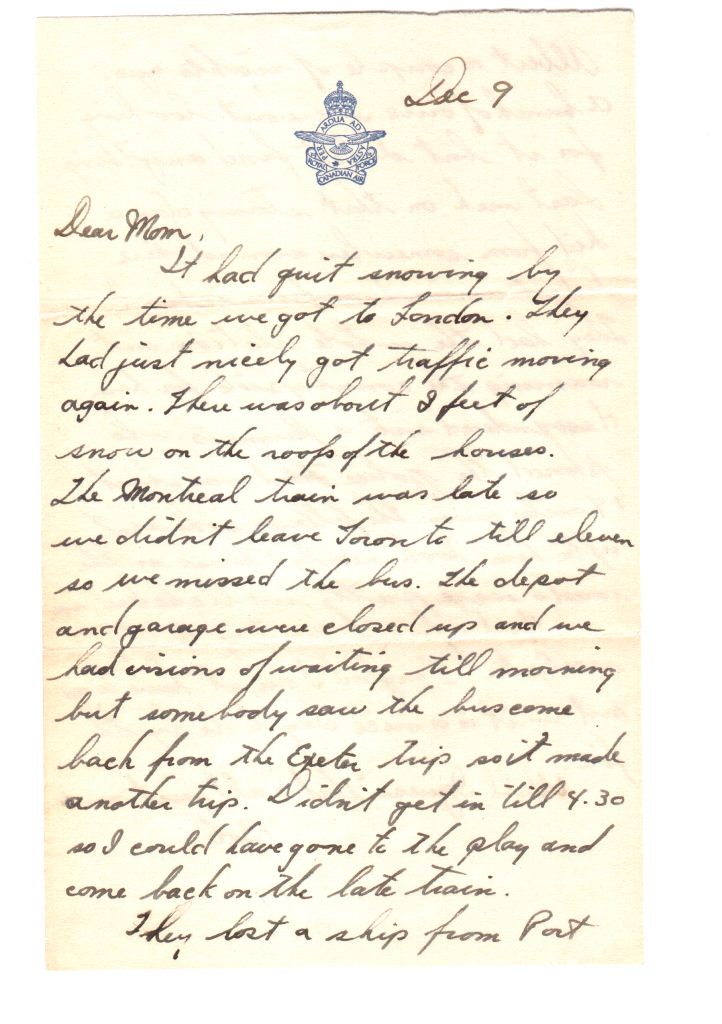 Dec 9
PER ARDUA AD ASTRA
ROYAL CANADIAN AIR FORCE
Dear Mom,
It had quit snowing by
the time we got to London. They
had just nicely got traffic moving
again. There was about 3 feet of
snow on the roofs of the houses.
The Montreal train was late so
we didn't leave Toronto till eleven
so we missed the bus. The depot
and garage were closed up and we
had visions of waiting till morning
but somebody saw the bus come
back from the Exeter trip so it made
another trip. Didn't get in till 4.30
so I could have gone to the play and
come back on the late train.
They lost a ship from Port